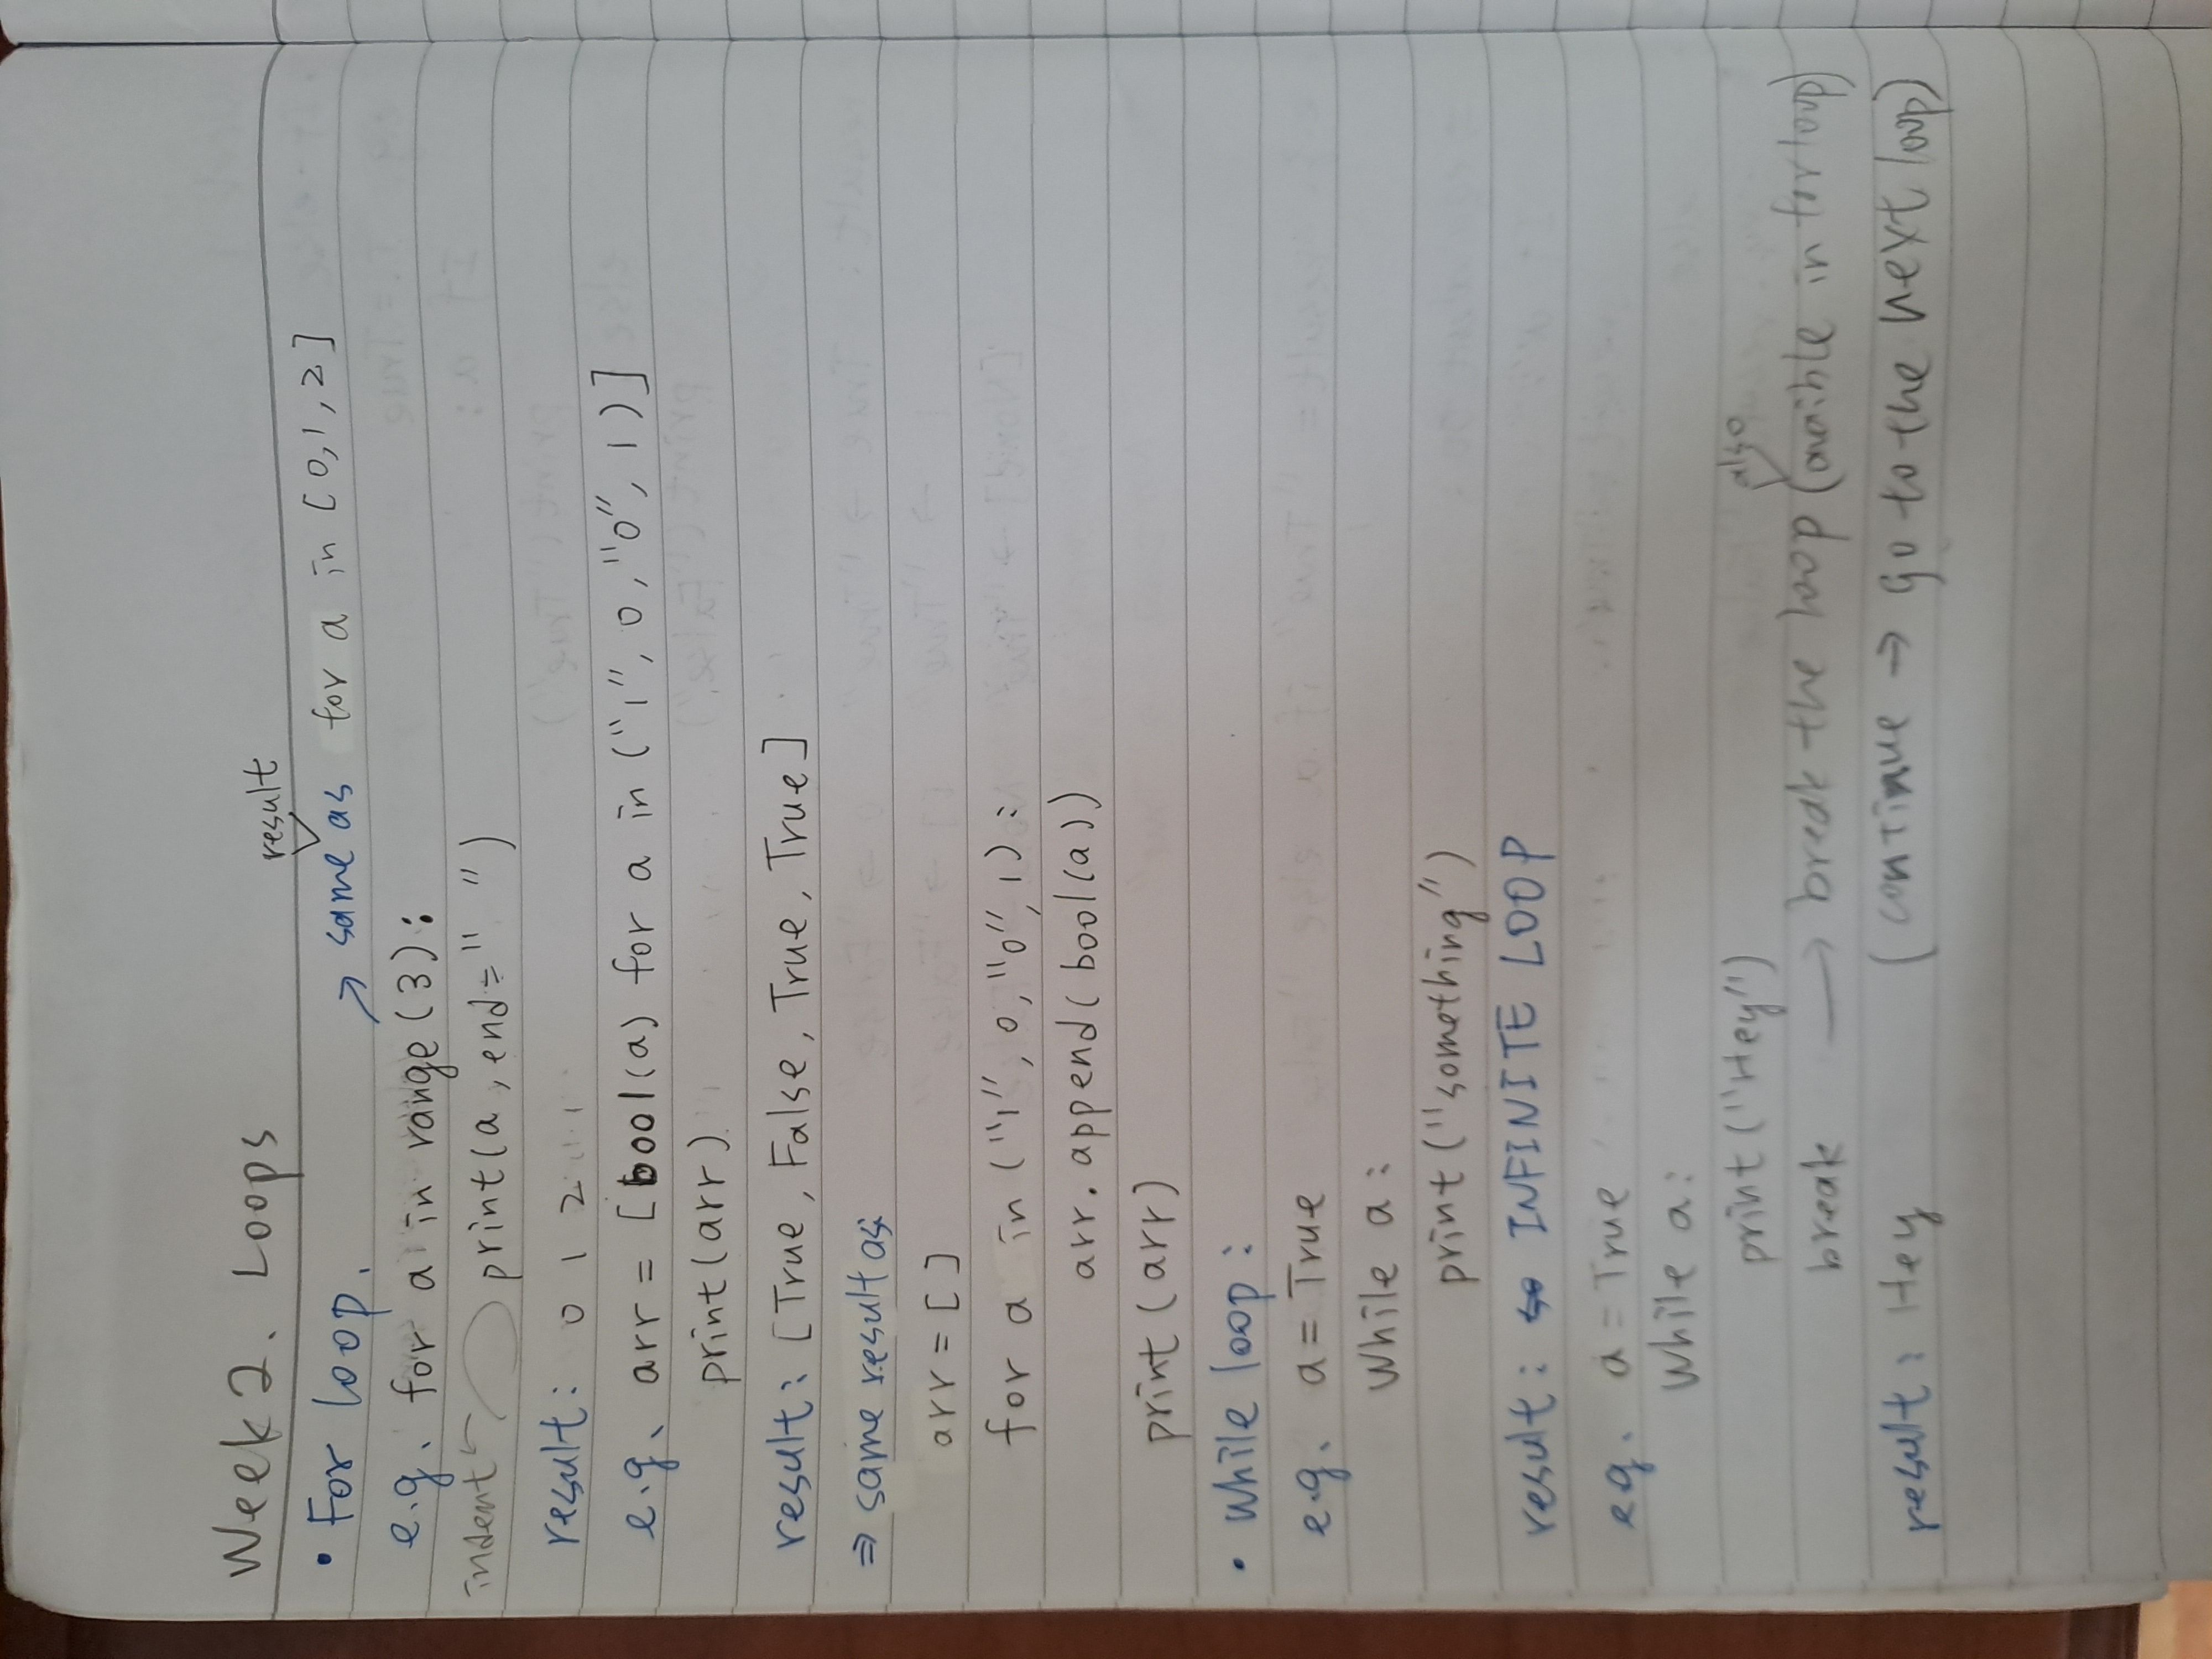 Week 2. Loops
result
• For loop. → same as for a in [0,1,2]
e.g. for a in range(3):
indent ← print(a, end=" ")
result: 0 1 2
e.g. arr = [bool(a) for a in ("1", 0, "0", 1)]
print(arr)
result: [True, False, True, True]
⇒ same result as:
arr = []
for a in ("1", 0, "0", 1):
arr.append(bool(a))
print(arr)
• While loop:
e.g. a = True
While a:
print("something")
result: INFINITE LOOP
eg. a = True
While a:
print("Hey")
also
break → break the loop (in for loop)
result: Hey (continue → go to the next loop)